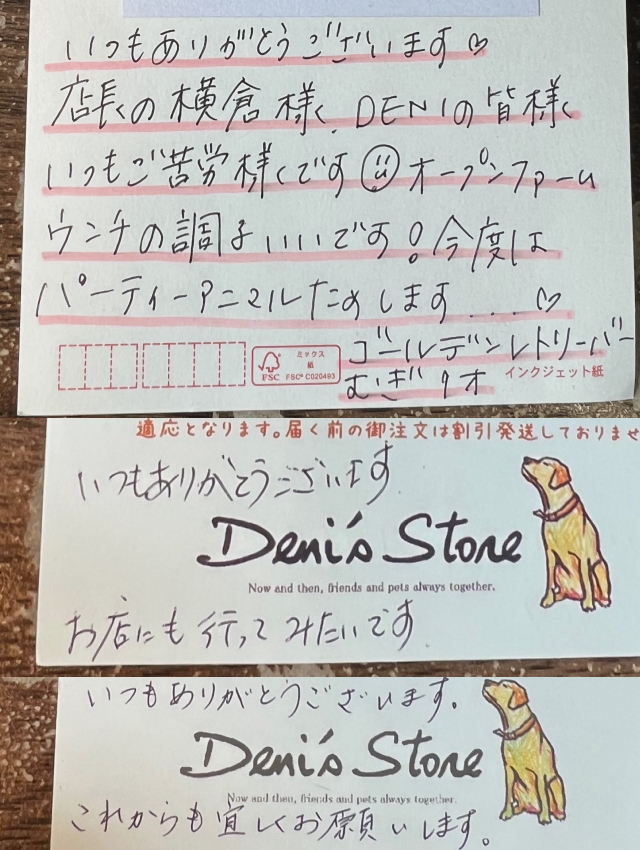 いつもありがとうございます♡
店長の横倉様、DENIの皆様
いつもご苦労様です☺オープンファーム
ウンチの調子いいです!今度は
パーティーアニマルためします....♡
ゴールデンレトリーバー
むぎ 9才
ミックス
紙
FSC
FSC® C020493
インクジェット紙
適応となります。届く前の御注文は割引発送しておりませ
いつもありがとうございます
Deni's Store
Now and then, friends and pets always together.
お店にも行ってみたいです
いつもありがとうございます。
Deni's Store
Now and then, friends and pets always together.
これからも宜しくお願いします。